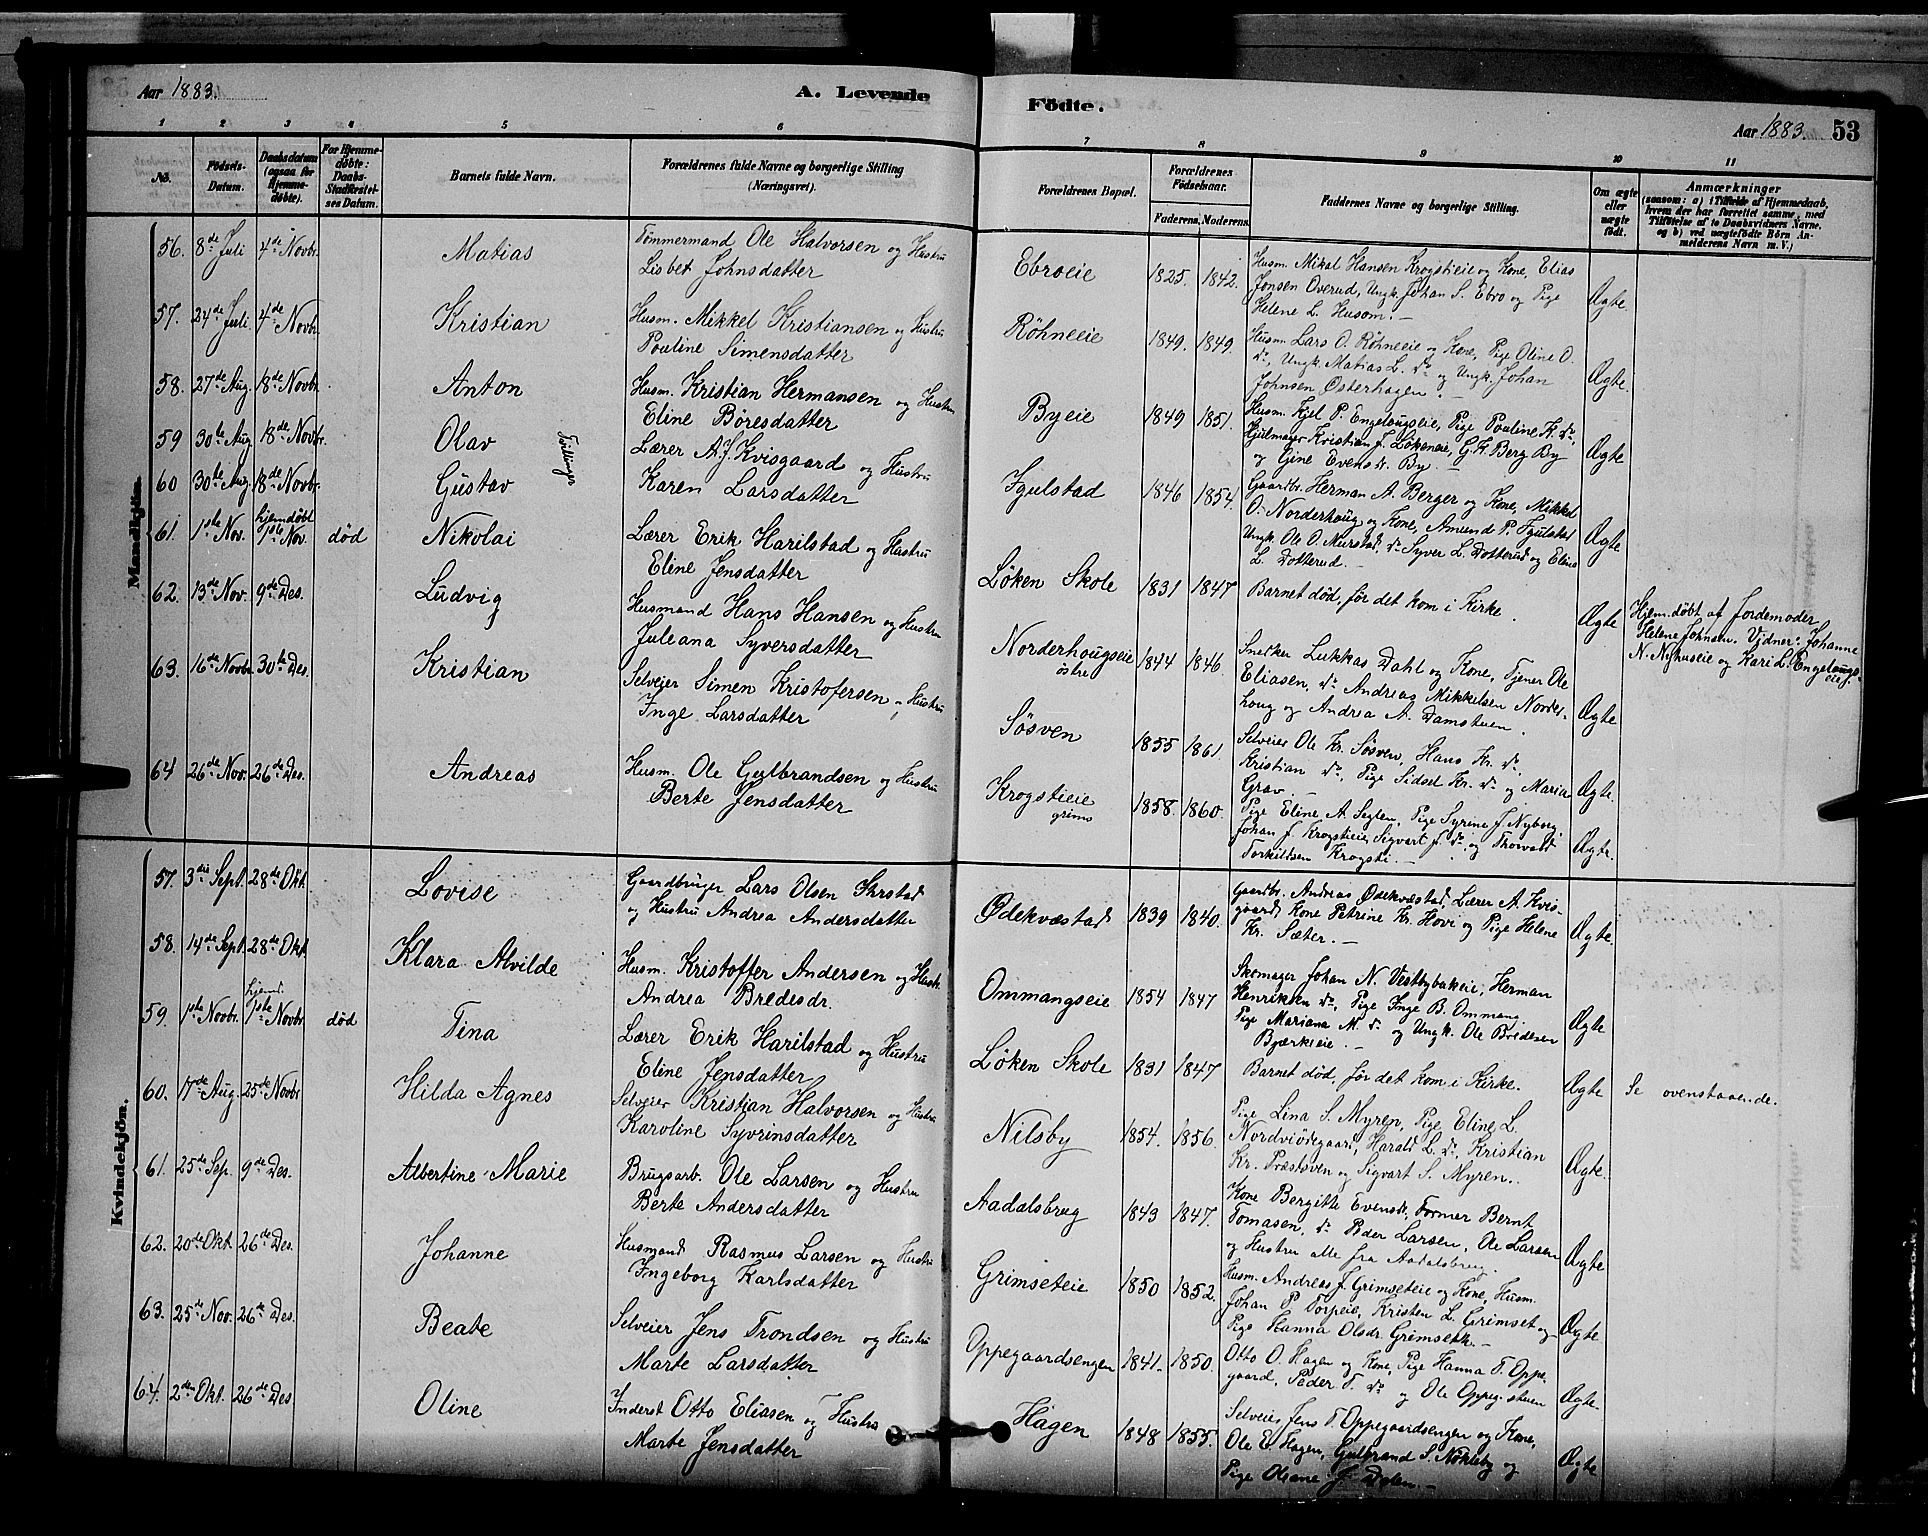 Aar 1883.
A. Levende
Födte.
Aar 1883.
53
1 2 3 4 5 6 7 8 9 10 11
No.
Födsels-
Datum.
Daabsdatum
(ogsaa for
Hjemme-
døbte).
For Hjemme-
døbte:
Daabs-
Stadfæstel-
ses Datum.
Barnets fulde Navn.
Forældrenes fulde Navne og borgerlige Stilling
(Næringsvei).
Forældrenes Bopæl.
Forældrenes
Födselsaar.
Faderens. Moderens.
Faddernes Navne og borgerlige Stilling.
Om ægte
eller
uægte
født.
Anmærkninger
(saasom: a) i Tilfælde af Hjemmedaab,
hvem der har forrettet samme, med
Tilføielse af to Daabsvidners Navne,
og b) ved uægtefödte Börn An-
melderens Navn m. V.)
Mandkjön.
56. 8de Juli 4de Novbr. Matias
Tömmermand Ole Halvorsen og Hustru
Lisbet Johnsdatter
Ebroeie 1825. 1842.
Husm. Mikal Hansen Krogstieie og Kone, Elias
Jonsen Overud, Ungk. Johan S. Ebro og Pige
Helene L. Husom. —
Ægte.
57. 24de Juli 4de Novbr Kristian
Husm. Mikkel Kristiansen og Hustru
Pouline Simensdatter
Röhneeie 1849. 1849.
Husm. Lars O. Röhneeie og Kone, Pige Oline O.
do, Ungk. Matias L. do og Ungk. Johan
Johnsen Østerhagen. —
Ægte.
58. 27de Aug. 18de Novbr. Anton
Husm. Kristian Hermansen og Hustru
Eline Böresdatter
Byeie 1849 1851.
Husm. Kjel P. Engelougseie, Pige Pouline K. do,
Hjulmager Kristian J. Lökeneie, G. K. Berg By
og Gine Evensdr. By.
Ægte
59 30te Aug 18de Novbr. Olav
Tvillinger
60 30te Aug 18de Novbr. Gustav
Lærer A. J. Kvisgaard og Hustru
Karen Larsdatter
Igulstad 1846 1854.
Gaardbr. Herman A. Berger og Kone, Mikkel
O. Norderhoug og Kone, Amund P. Igulstad
Ungk. Ole O. Murstad, do Syver L. Dotterud og Eline
L. Dotterud. —
Ægte
61. 1ste Nov. hjemdöbt 1ste Nov. död Nikolai
Lærer Erik Harilstad og Hustru
Eline Jensdatter
Löken Skole 1831 1847
Barnet död, för det kom i Kirke.
Ægte
Hjem.döbt af Jordemoder
Helene Johnsen. Vidner: Johanne
N. Nyhuseie og Kari L. Engelougs-
eie.
62. 13de Nov. 9de Des. Ludvig
Husmand Hans Hansen og Hustru
Juleana Syversdatter
Norderhougseie
östre
1844 1846.
Snedker Lukkas Dahl og Kone, Tjener Ole
Eliasen, do Andreas Mikkelsen Norder-
houg og Andrea A. Damstuen.
Ægte
63. 16de Novbr 30te Des. Kristian
Selveier Simen Kristofersen og Hustru
Inge Larsdatter
Sösven 1855 1861.
Selveier Ole Kr. Sösven, Hans Kr. do,
Kristian do, Pige Sidsel Kr. do og Maria
Grav. —
Ægte.
64 26de Nov. 26de Des. Andreas
Husm. Ole Gulbrandsen og Hustru
Berte Jensdatter
Krogstieie
grims
1858. 1860.
Pige Eline A. Seglen, Pige Syrene J. Nyborg.
Johan J. Krogstieie, Sigvart J. do, og Thorvald
Torkildsen Krogsti. —
Ægte.
Kvindekjön.
57. 3die Sept. 28de Okt. Lovise
Gaardbruger Lars Olsen
og Hustru Andrea Andersdatter
Ødekvæstad 1839 1840.
Gaardbr. Andreas Ødekvæstad, Lærer A. Kvis-
gaard, Kone Petrine Kr. Hovi og Pige Helene
Kr. Sæter. —
Ægte.
58. 14de Sept. 28de Okt. Klara Alvilde
Husm. Kristoffer Andersen og Hustr.
Andrea Bredesdr.
Ommangseie 1854 1847
Skomager Johan N. Vestbybakeie, Herman
Henriksen do, Pige Inge B. Ommang,
Pige Mariana M. do og Ungk. Ole Bredesen
Bjerkeeie. —
Ægte.
59. 1ste Novbr. hjemd. 1ste Novbr död Tina
Lærer Erik Harilstad og Hustru
Eline Jensdatter
Löken Skole 1831 1847
Barnet död, för det kom i Kirke.
Ægte
Se ovenstaaende.
60. 17de Aug. 25de Novbr Hilda Agnes
Selveier Kristian Halvorsen og Hustru
Karoline Syvrinsdatter
Nilsby 1854. 1856.
Pige Lina S. Myren, Pige Eline L.
Nordviödegaard, Harald L. do, Kristian
Kr. Præstöven og Sigvart S. Myren.
Ægte.
61. 25de Sep. 9de Des. Albertine Marie
Brugsarb. Ole Larsen og Hustru
Berte Andersdatter
Aadalsbrug 1843 1847.
Kone Bergitte Evensdr., Former Bernt
Tomasen, do Peder Larsen, Ole Larsen
og Hustru alle fra Aadalsbrug.
Ægte
62. 20de Okt. 26de Des. Johanne
Husmand Rasmus Larsen og Hustru
Ingeborg Karlsdatter
Grimseteie 1850 1852.
Husm. Andreas J. Grimseteie og Kone, Husm.
Johan P. Torpeie, Kristen L. Grimset og
Pige Hanna Olsdr. Grimset. —
Ægte.
63. 25de Nov. 26de Des. Beate
Selveier Jens Trondsen og Hustru
Marte Larsdatter
Oppegaardsengen 1841. 1850.
Otto O. Hagen og Kone, Pige Hanna T. Oppe-
gaard, Peder T. do og Ole Oppeg. stuen
Ægte.
64. 2den Okt. 26de Des Oline
Inderst Otto Eliasen og Hustru
Marte Jensdatter
Hagen 1848 1855.
Selveier Jens T. Oppegaardsengen og Kone,
Ole E. Hagen, Gulbrand S. Nökleby og
Pige Oleane J. Dalen. —
Ægte